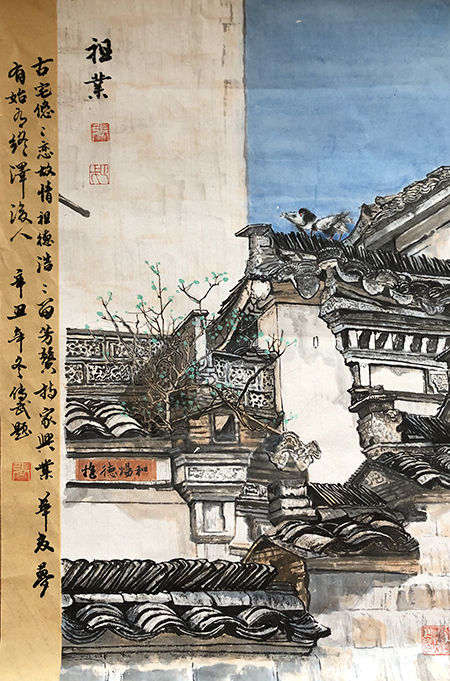 祖業
古宅憶々恋故情祖德浩々留芳馨持家興業華友夢
有始有終澤後人 辛丑年冬傳武題
和陽德